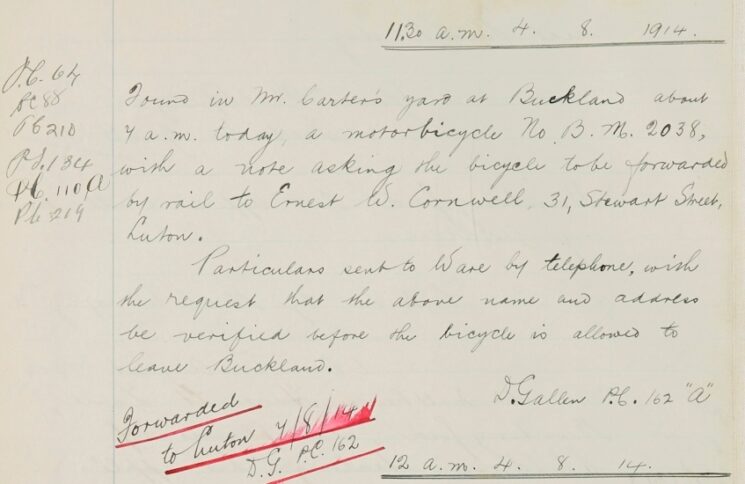 11.30 a.m. 4. 8. 1914.
P.C. 64
PC 88
PC 210
P.S. 134
P.C. 110 A
P.C. 219
Found in Mr. Carter's yard at Buckland about
7 a.m. today, a motorbicycle No. B.M. 2038,
with a note asking the bicycle to be forwarded
by rail to Ernest W. Cornwell, 31, Stewart Street,
Luton.
Particulars sent to Ware by telephone, with
the request that the above name and address
be verified before the bicycle is allowed to
leave Buckland.
D. Gallen P.C. 162 "A"
Forwarded
to Luton 7/8/14
D.G. P.C. 162
12 a.m. 4. 8. 14.